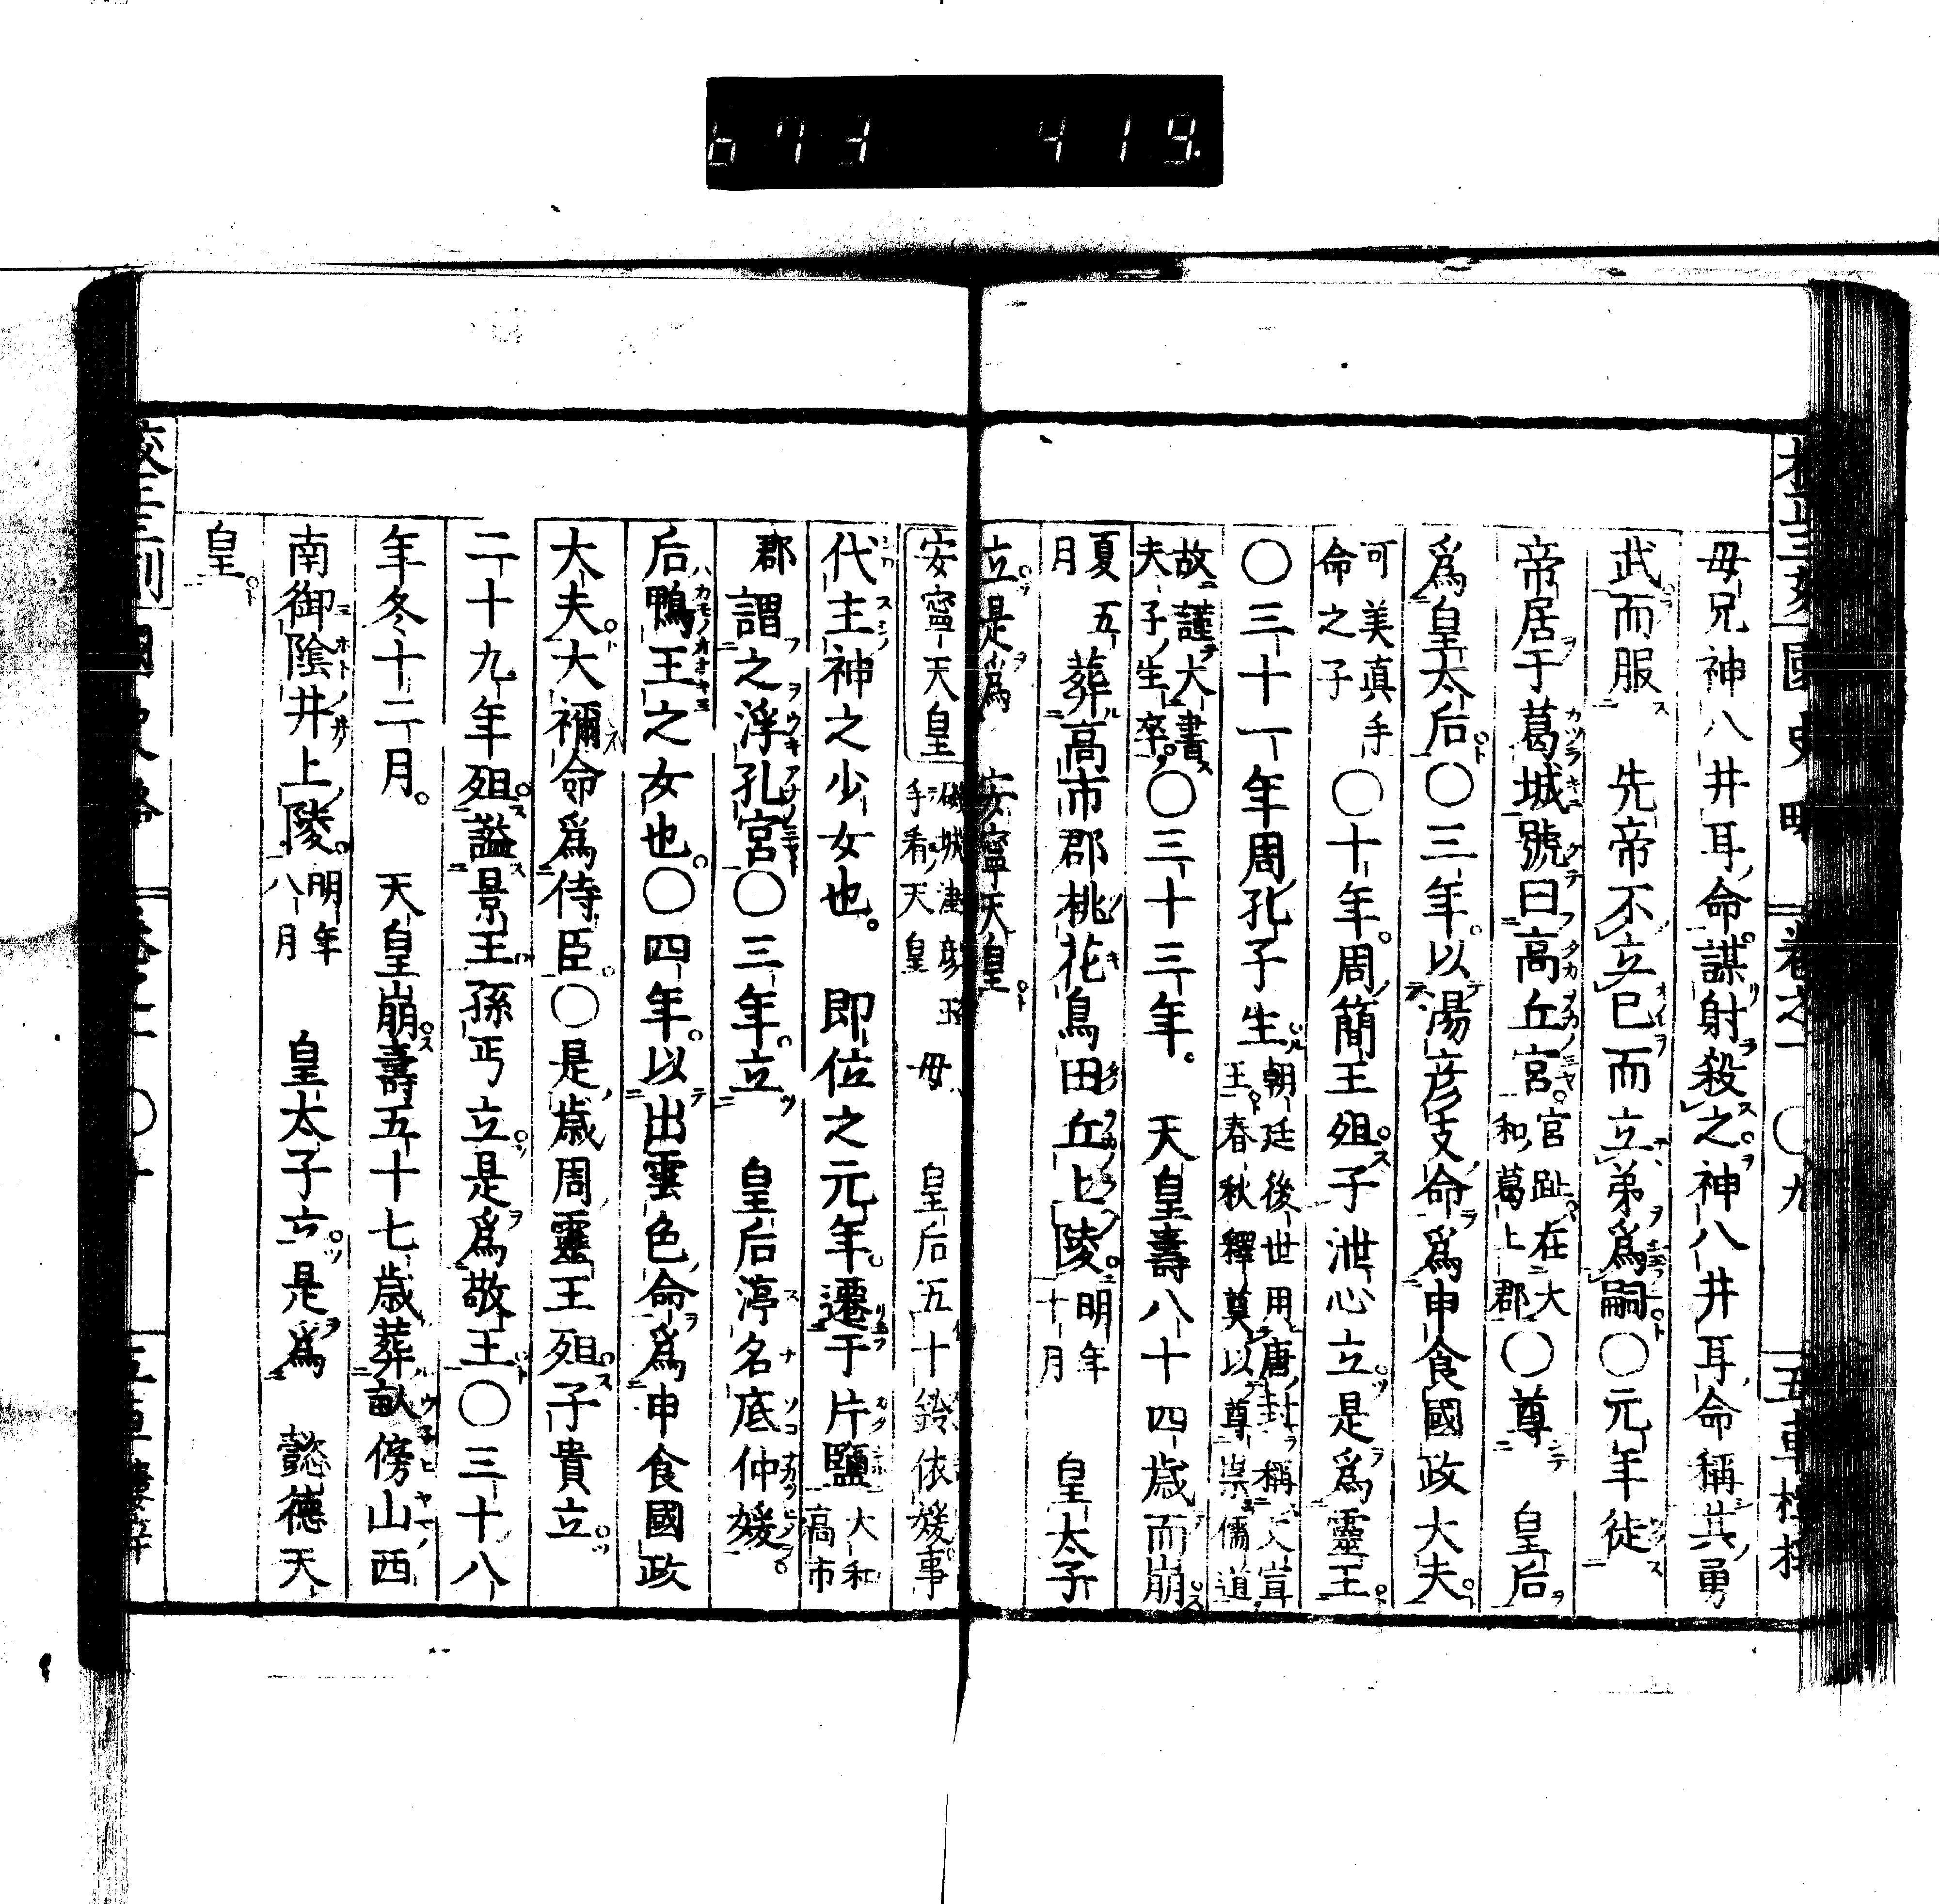 673 419.
國史略 卷之一 〇九
母兄神八井耳命謀射殺之神八井耳命稱其勇
武而服 先帝不立已而立弟爲嗣〇元年徒
帝居于葛城號曰高丘宮 宮趾在大和葛上郡 〇尊 皇后
爲皇太后〇三年以湯彦支命爲申食國政大夫
可美真手命之子 〇十年周簡王殂子泄心立是爲靈王
〇三十一年周孔子生 朝廷後世用唐封稱文宣王春秋釋奠以尊崇儒道
故謹大書夫子生卒 〇三十三年 天皇壽八十四歳而崩
夏五月 葬高市郡桃花鳥田丘上陵 明年十月 皇太子
立是爲 安寧天皇
安寧天皇 磯城津彦玉手看天皇 母 皇后五十鈴依媛事
代主神之少女也 即位之元年遷于片鹽 大和高市
郡 謂之浮孔宮〇三年立 皇后渟名底仲媛
后鴨王之女也〇四年以出雲色命爲申食國政
大夫大禰命爲侍臣〇是歳周靈王殂子貴立
二十九年殂謚景王孫丐立是爲敬王〇三十八
年冬十二月 天皇崩壽五十七歳葬畝傍山西
南御陰井上陵 明年八月 皇太子立是爲 懿德天
皇